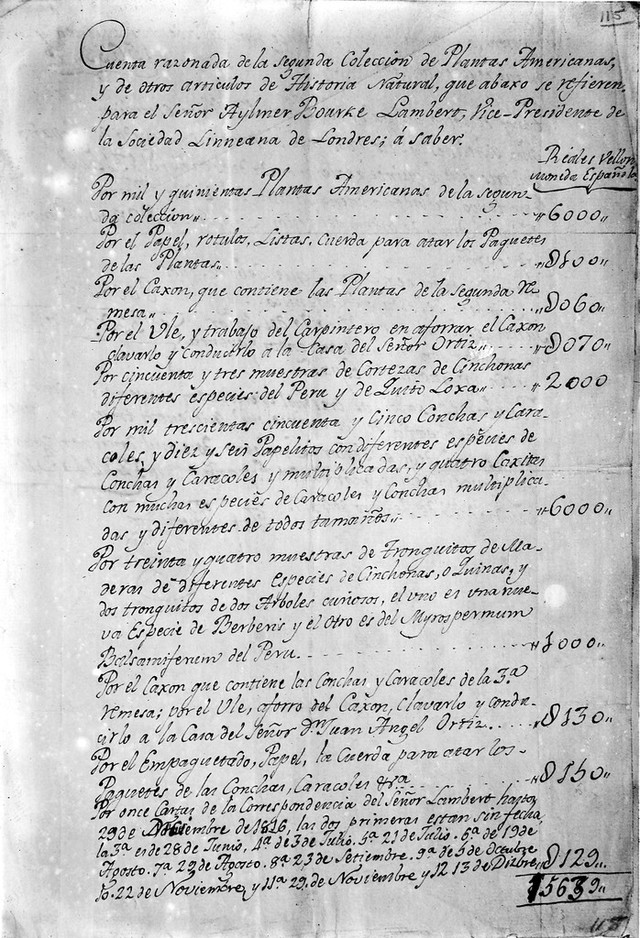 115
Cuenta razonada de la segunda Coleccion de Plantas Americanas,
y de otros articulos de Historia Natural, que abaxo se refieren,
para el Señor Aylmer Bourke Lambert, Vice-Presidente de
la Sociedad Linneana de Londres; á saber.
Reales Vellon
moneda Española
Por mil y quinientas Plantas Americanas de la segun-
da coleccion„ . . . . . . „6000„
Por el Papel, rotulos, Listas, Cuerda para atar los Paquetes
de las Plantas„ . . . . . . „0100„
Por el Caxon, que contiene las Plantas de la segunda re-
mesa„ . . . . . . „0060„
Por el Ule, y trabajo del Carpintero en aforrar el Caxon
clavarlo y conducirlo a la Casa del Señor Ortiz„ . . . „0070„
Por cincuenta y tres muestras de Cortezas de Cinchonas
diferentes especies del Peru y de Quito Loxa„ . . . . „2000
Por mil trescientas cincuenta y Cinco Conchas y Cara-
coles, y diez y seis Papelitos con diferentes especies de
Conchas y Caracoles y multiplicadas, y quatro Caxitas
con muchas especies de Caracoles y Conchas multiplica-
das y diferentes de todos tamaños„ . . . . . „6000„
Por treinta y quatro muestras de Tronquitos de Ma-
deras de diferentes Especies de Cinchonas, o Quinas, y
dos tronquitos de dos Arboles curiosos, el uno es una nue-
va Especie de Berberis y el otro es del Myrospermum
Balsamiferum del Peru . . . . . . „1000„
Por el Caxon que contiene las Conchas y Caracoles de la 3.ª
remesa; por el Ule, aforro del Caxon, Clavarlo y condu-
cirlo a la Casa del Señor D.n Juan Angel Ortiz . . . . „0130„
Por el Empaquetado, Papel, la Cuerda para atar los
Paquetes de las Conchas, Caracoles &ra . . . . „0150„
Por once Cartas de la Correspondencia del Señor Lambert hasta
29 de Diciembre de 1816, las dos primeras estan sin fecha,
la 3.ª es de 28 de Junio, 4.ª de 3 de Julio. 5.ª 21 de Julio. 6.ª de 19 de
Agosto. 7.ª 29 de Agosto. 8.ª 23 de Setiembre. 9.ª de 5 de Octubre
10. 22 de Noviembre, y 11.ª 29 de Noviembre y 12 13 de Dizbre„ „0129„
15639„